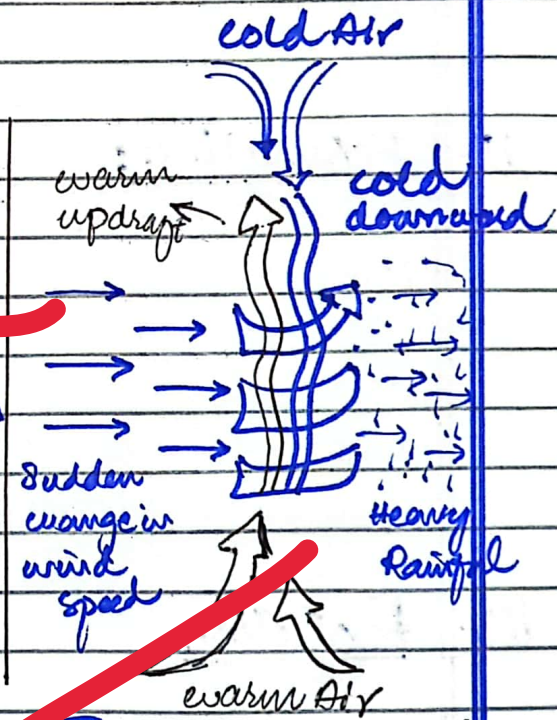 cold Air
warm
updraft
cold
downward
Sudden
change in
wind
speed
Heavy
Rainfall
warm Air